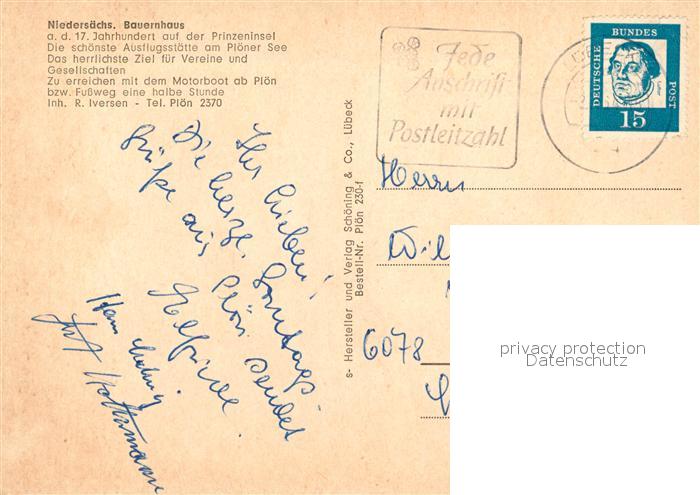 Niedersächs. Bauernhaus
a. d. 17. Jahrhundert auf der Prinzeninsel
Die schönste Ausflugsstätte am Plöner See
Das herrlichste Ziel für Vereine und
Gesellschaften
Zu erreichen mit dem Motorboot ab Plön
bzw. Fußweg eine halbe Stunde
Inh. R. Iversen - Tel. Plön 2370
Jede
Anschrift
mit
Postleitzahl
DEUTSCHE BUNDES POST
15
s- Hersteller und Verlag Schöning & Co., Lübeck
Bestell-Nr. Plön 230-f
Ihr Lieben!
Die herzl. Sonntags
Grüße aus Plön sendet
Herrn
Wil
6078
privacy protection
Datenschutz